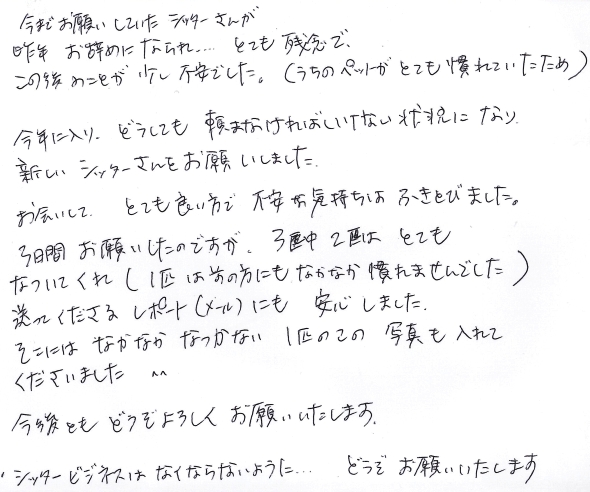 今までお願いしていたシッターさんが
昨年 お辞めになられ... とても残念で、
この後のことが少し不安でした。(うちのペットがとても慣れていたため)
今年に入り、どうしても頼まなければいけない状況になり
新しいシッターさんをお願いしました。
お会いして、とても良い方で不安な気持ちはふきとびました。
3日間お願いしたのですが、3匹中2匹はとても
なついてくれ(1匹は前の方にもなかなか慣れませんでした)
送ってくださるレポート(メール)にも安心しました。
そこにはなかなかなつかない1匹のこの写真も入れて
くださいました ^^
今後ともどうぞよろしくお願いいたします。
・シッタービジネスはなくならないように... どうぞお願いいたします